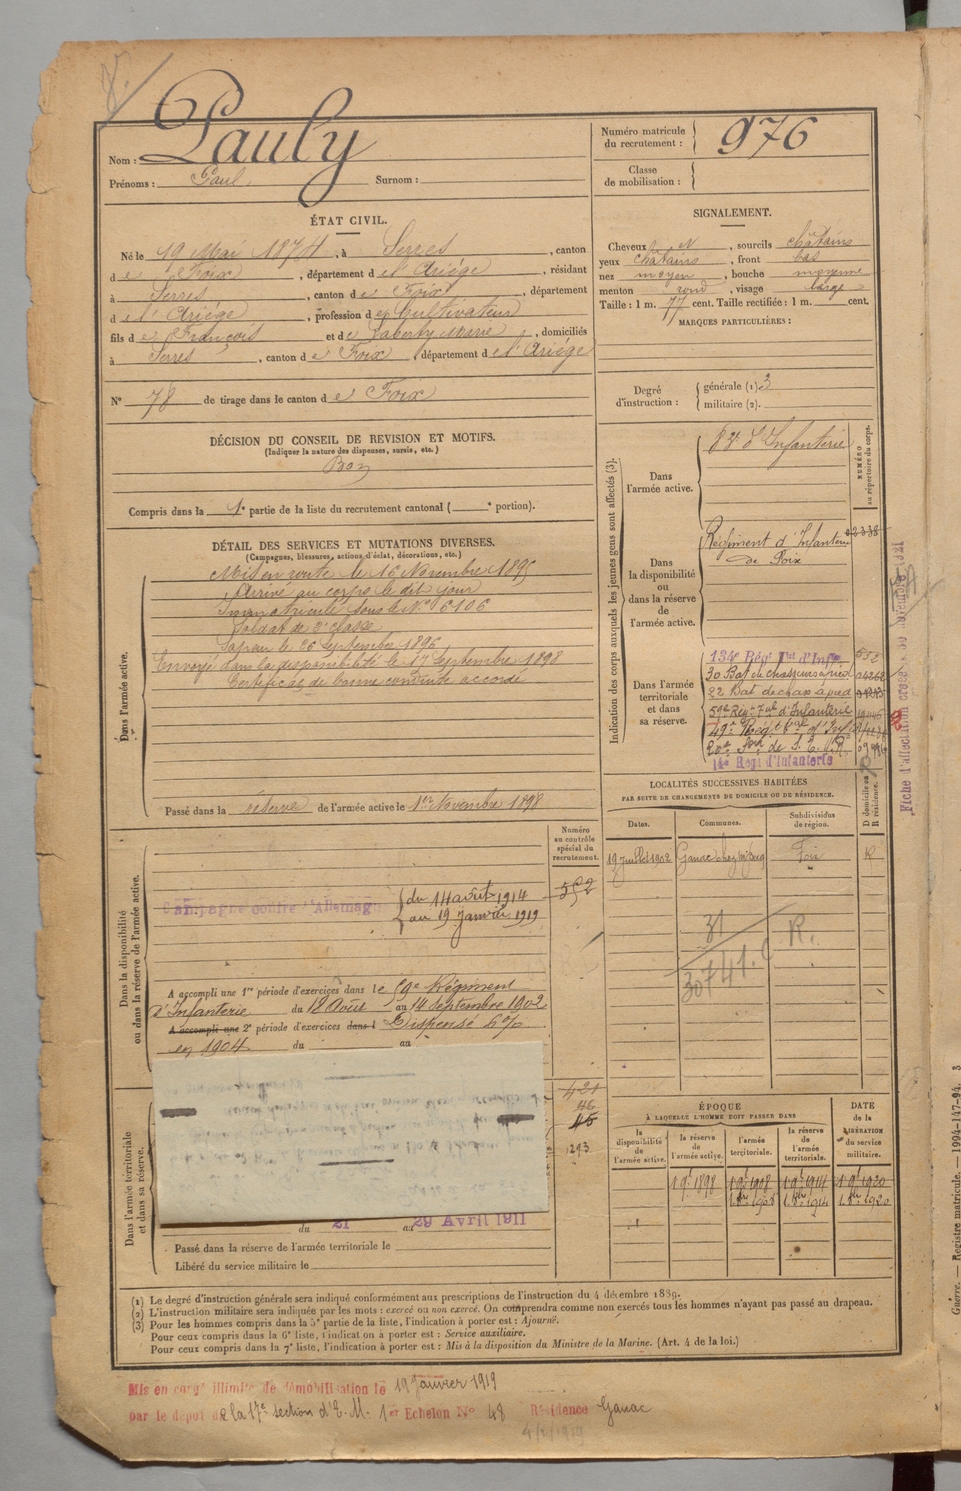 Nom : Pauly
Prénoms : Paul. Surnom :
Numéro matricule du recrutement : 976
Classe de mobilisation :
ÉTAT CIVIL.
Né le 19 Mai 1874, à Serres, canton
d e Foix, département d e l'Ariége, résidant
à Serres, canton d e Foix, département
d e l'Ariége, profession d e Cultivateur
fils d e François et d e Laberty Marie, domiciliés
à Serres, canton d e Foix, département d e l'Ariége
N° 78 de tirage dans le canton d e Foix
DÉCISION DU CONSEIL DE REVISION ET MOTIFS.
(Indiquer la nature des dispenses, sursis, etc.)
Bon
Compris dans la 1e partie de la liste du recrutement cantonal ( e portion).
SIGNALEMENT.
Cheveux , sourcils châtains
yeux châtains, front bas
nez moyen, bouche moyenne
menton rond, visage large
Taille : 1 m. 77 cent. Taille rectifiée : 1 m. cent.
MARQUES PARTICULIÈRES :
Degré d'instruction : générale (1). 3
militaire (2).
DÉTAIL DES SERVICES ET MUTATIONS DIVERSES.
(Campagnes, blessures, actions d'éclat, décorations, etc.)
Dans l'armée active.
Mis en route le 16 Novembre 1895
Arrivé au corps le dit jour
Immatriculé sous le N° 6106
Soldat de 2e classe
Sapeur le 26 Septembre 1896
Envoyé dans la disponibilité le 17 Septembre 1898
Certificat de bonne conduite accordé
Passé dans la réserve de l'armée active le 1er Novembre 1898
Indication des corps auxquels les jeunes gens sont affectés (3).
NUMÉRO au répertoire du corps.
Dans l'armée active.
d'Infanterie
Dans la disponibilité ou dans la réserve de l'armée active.
Régiment d'Infanterie
de Foix
02338
Dans l'armée territoriale et dans sa réserve.
134e Régt Tial d'Infie 552
30 Bat de chasseurs à pied 04262
22 Bat de chas à pied
59e Régt Tal d'Infanterie
49e Régt Tal d'Inf
20e Son de S. E. M. R.
14e Régt d'Infanterie
Fiche d'affectation
LOCALITÉS SUCCESSIVES HABITÉES
PAR SUITE DE CHANGEMENTS DE DOMICILE OU DE RÉSIDENCE.
Dates. Communes. Subdivisions de région. D domicile ou R résidence.
19 Juillet 1902 Ganac Foix R
31 R.
30741.
Dans la disponibilité ou dans la réserve de l'armée active.
Numéro au contrôle spécial du recrutement.
552
Campagne contre l'Allemagne du 14 août 1914
au 19 Janvier 1919
A accompli une 1re période d'exercices dans le 59e Régiment
d'Infanterie du 18 Août au 14 Septembre 1902
A accompli une 2e période d'exercices dans l Dispensé 6 %
en 1904 du au
Dans l'armée territoriale et dans sa réserve.
421
46
45
293
du 21 au 29 Avril 1911
Passé dans la réserve de l'armée territoriale le
Libéré du service militaire le
ÉPOQUE
À LAQUELLE L'HOMME DOIT PASSER DANS
DATE de la LIBÉRATION du service militaire.
la disponibilité de l'armée active. la réserve de l'armée active. l'armée territoriale. la réserve de l'armée territoriale.
1 9e 1898 1 9e 1908 1 9e 1914 1 9e 1920
1 bre 1908 1 bre 1914 1 bre 1920
(1) Le degré d'instruction générale sera indiqué conformément aux prescriptions de l'instruction du 4 décembre 1889.
(2) L'instruction militaire sera indiquée par les mots : exercé ou non exercé. On comprendra comme non exercés tous les hommes n'ayant pas passé au drapeau.
(3) Pour les hommes compris dans la 5e partie de la liste, l'indication à porter est : Ajourné.
Pour ceux compris dans la 6e liste, l'indication à porter est : Service auxiliaire.
Pour ceux compris dans la 7e liste, l'indication à porter est : Mis à la disposition du Ministre de la Marine. (Art. 4 de la loi.)
Mis en congé illimité de démobilisation le 19 Janvier 1919
par le dépôt de la 17e section d'E. M. 1er Echelon N° 48 Résidence Ganac
Guerre. — Registre matricule. — 1994-147-94. 3